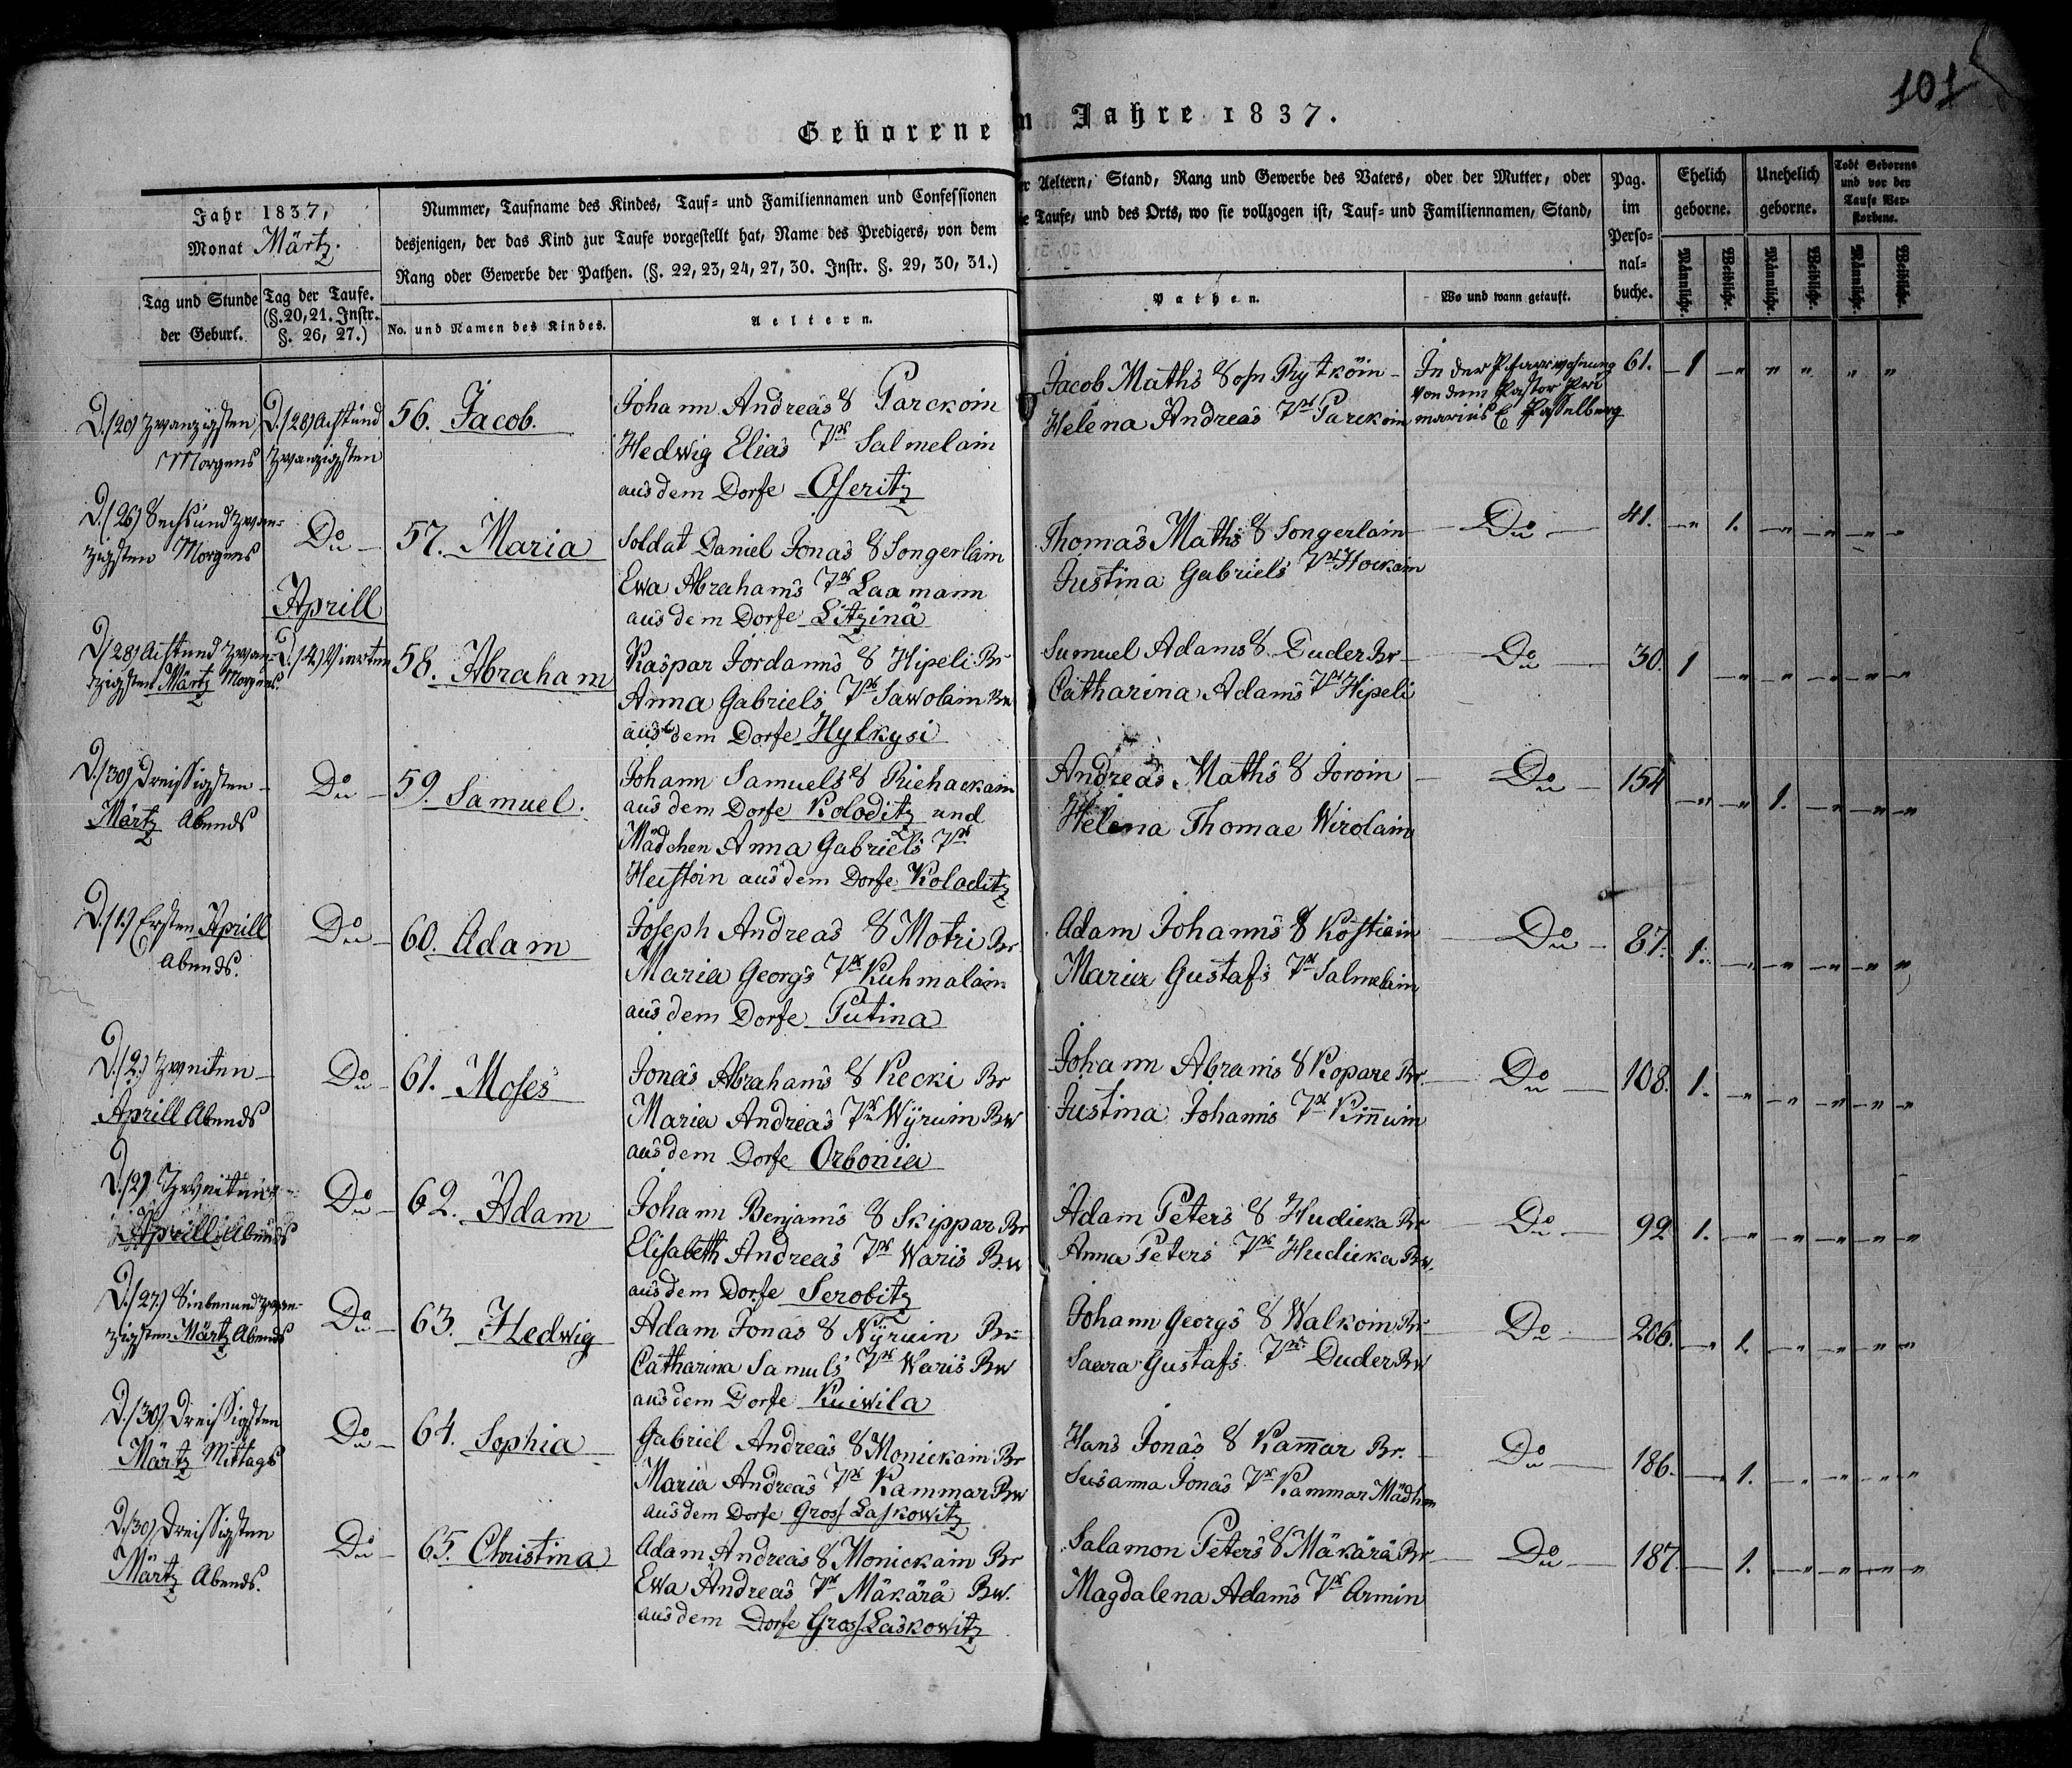 101
Geborene im Jahre 1837.
Jahr 1837,
Monat Märtz.
Nummer, Taufname des Kindes, Tauf- und Familiennamen und Confessionen
desjenigen, der das Kind zur Taufe vorgestellt hat, Name des Predigers, von dem
Rang oder Gewerbe der Pathen. (§. 22, 23, 24, 27, 30. Instr. §. 29, 30, 31.)
er Aeltern, Stand, Rang und Gewerbe des Vaters, oder der Mutter, oder
ie Taufe, und des Orts, wo sie vollzogen ist, Tauf- und Familiennamen, Stand,
Pag.
im
Perso-
nal-
buche.
Ehelich
geborne.
Unehelich
geborne.
Todt Geborene
und vor der
Taufe Ver-
storbene.
Tag und Stunde
der Geburt.
Tag der Taufe.
(§. 20, 21. Instr.
§. 26, 27.)
No. und Namen des Kindes.
Aeltern.
Pathen.
Wo und wann getauft.
Männliche.
Weibliche.
Männliche.
Weibliche.
Männliche.
Weibliche.
D. (20) Zwanzigsten
Morgens
D. (28) Achtund
zwanzigsten
56. Jacob.
Johann Andreas S Parckoin
Hedwig Elias Tr Salmelain
aus dem Dorfe Oseritz
Jacob Maths Sohn Rytköin
Helena Andreas Tr Parckoin
In der Pfarrwohnung
von dem Pastor Pri
marius E Hasselberg
61. 1 " " " " "
D. (26) Sechsundzwan-
zigsten Morgens
Do
57. Maria
Soldat Daniel Jonas S Songerlain
Ewa Abrahams Tr Laamann
aus dem Dorfe Litzinä
Thomas Maths S Songerlain
Justina Gabriels Tr
Do
41. " 1. " " " "
Aprill
D. (28) Achtundzwan-
zigsten Märtz Morgens.
D. (4) Vierten
58. Abraham
Kaspar Jordans S Hipeli Br
Anna Gabriels Tr Sawolain Bw
aus dem Dorfe Hylkysi
Samuel Adams S Duder Br
Catharina Adams Tr Hipeli
Do
30. 1 " " " " "
D. (30) Dreissigsten
Märtz Abends
Do
59. Samuel.
Johann Samuels S Riehackain
aus dem Dorfe Koloditz und
Mädchen Anna Gabriels Tr
Heistoin aus dem Dorfe Koloditz
Andreas Maths S Joroin
Helena Thomae Wirolain
Do
154 " " 1. " " "
D. (1.) Ersten Aprill
Abends.
Do
60. Adam
Joseph Andreas S Motri Br
Maria Georgs Tr Kuhmalain
aus dem Dorfe Putina
Adam Johanns S Köstiain
Maria Gustafs Tr Salmelain
Do
87. 1. " " " " "
D. (2.) Zweiten
Aprill Abends
Do
61. Moses
Jonas Abrahams S Kecki Br
Maria Andreas Tr Wÿruin Bw
aus dem Dorfe Orbonia
Johann Abrams S Kopare Br.
Justina Johanns Tr Kinnuin
Do
108. 1. " " " " "
D. (2) Zweiten
Aprill Abends
Do
62. Adam
Johann Benjams S Skippar Br
Elisabeth Andreas Tr Waris Bw
aus dem Dorfe Serobitz
Adam Peters S Hudieka Br
Anna Peters Tr Hudieka Bw.
Do
92 1. " " " " "
D. (27.) Siebenundzwan-
zigsten Märtz Abends
Do
63. Hedwig
Adam Jonas S Nÿruin Br
Catharina Samuls Tr Waris Bw
aus dem Dorfe Kuiwila
Johann Georgs S Walkoin Br
Saara Gustafs Tr Duder Bw
Do
206. " 1. " " " "
D. (30) Dreissigsten
Märtz Mittags
Do
64. Sophia
Gabriel Andreas S Monickain Br
Maria Andreas Tr Kammar Bw
aus dem Dorfe Gross Laskowitz
Hans Jonas S Kammar Br.
Susanna Jonas Tr Kammar Mädhen
Do
186. " 1. " " " "
D. (30) Dreissigsten
Märtz Abends.
Do
65. Christina
Adam Andreas S Monickain Br
Ewa Andreas Tr Mäkärä Bw.
aus dem Dorfe Gross Laskowitz
Salamon Peters S Mäkärä Br
Magdalena Adams Tr Armin
Do
187. 1. " " " "